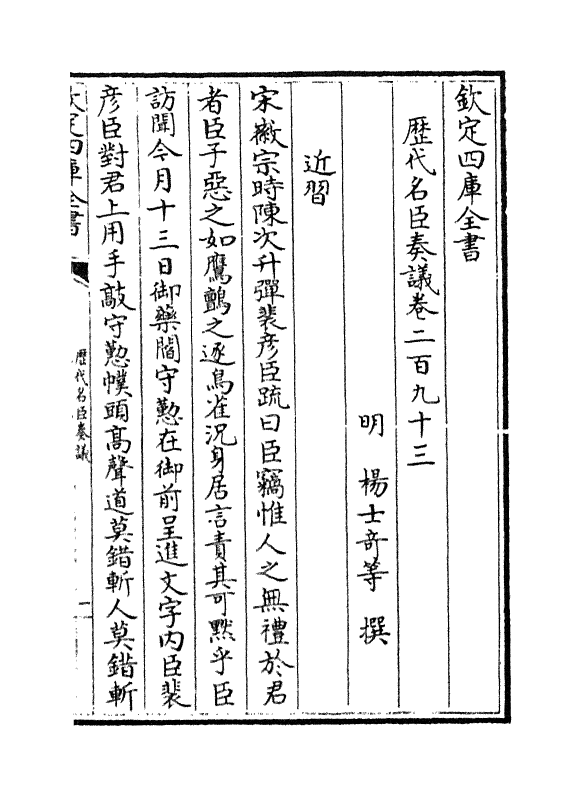 欽定四庫全書
歴代名臣奏議卷二百九十三
明　楊士奇等　撰
近習
宋徽宗時陳次升彈裴彦臣疏曰臣竊惟人之無禮於君
者臣子惡之如鷹鸇之逐鳥雀況身居言責其可黙乎臣
訪聞今月十三日御藥閻守懃在御前呈進文字内臣裴
彦臣對君上用手敲守懃幞頭高聲道莫錯斬人莫錯斬
欽定四庫全書
歴代名臣奏議
一